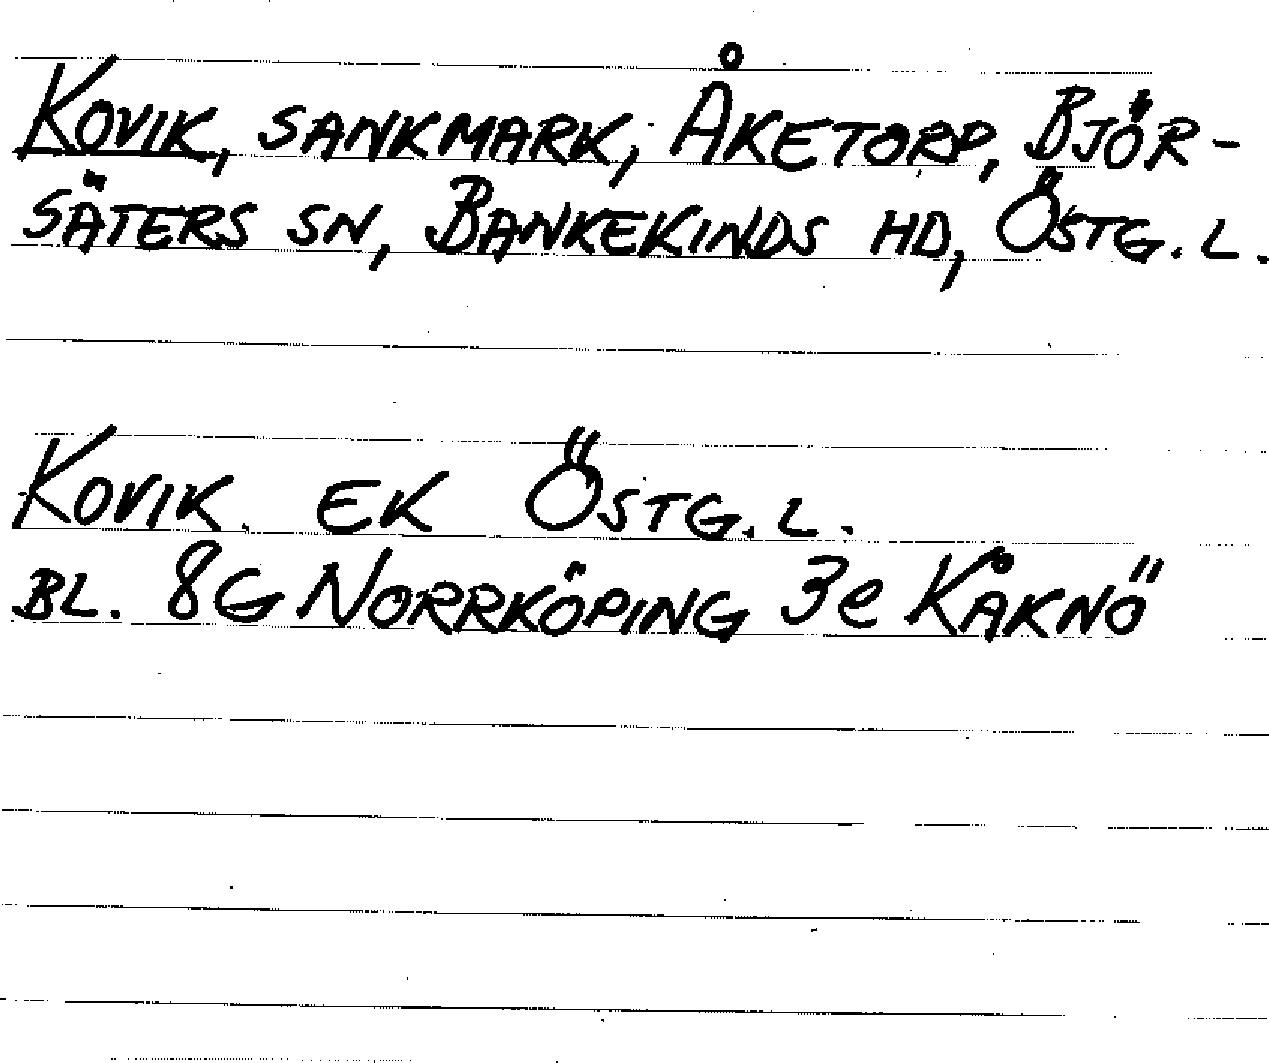 KOVIK, SANKMARK, ÅKETORP, BJÖR-
SÄTERS SN, BANKEKINDS HD, ÖSTG. L.
KOVIK. EK ÖSTG. L.
BL. 8G NORRKÖPING 3e KÅKNÖ